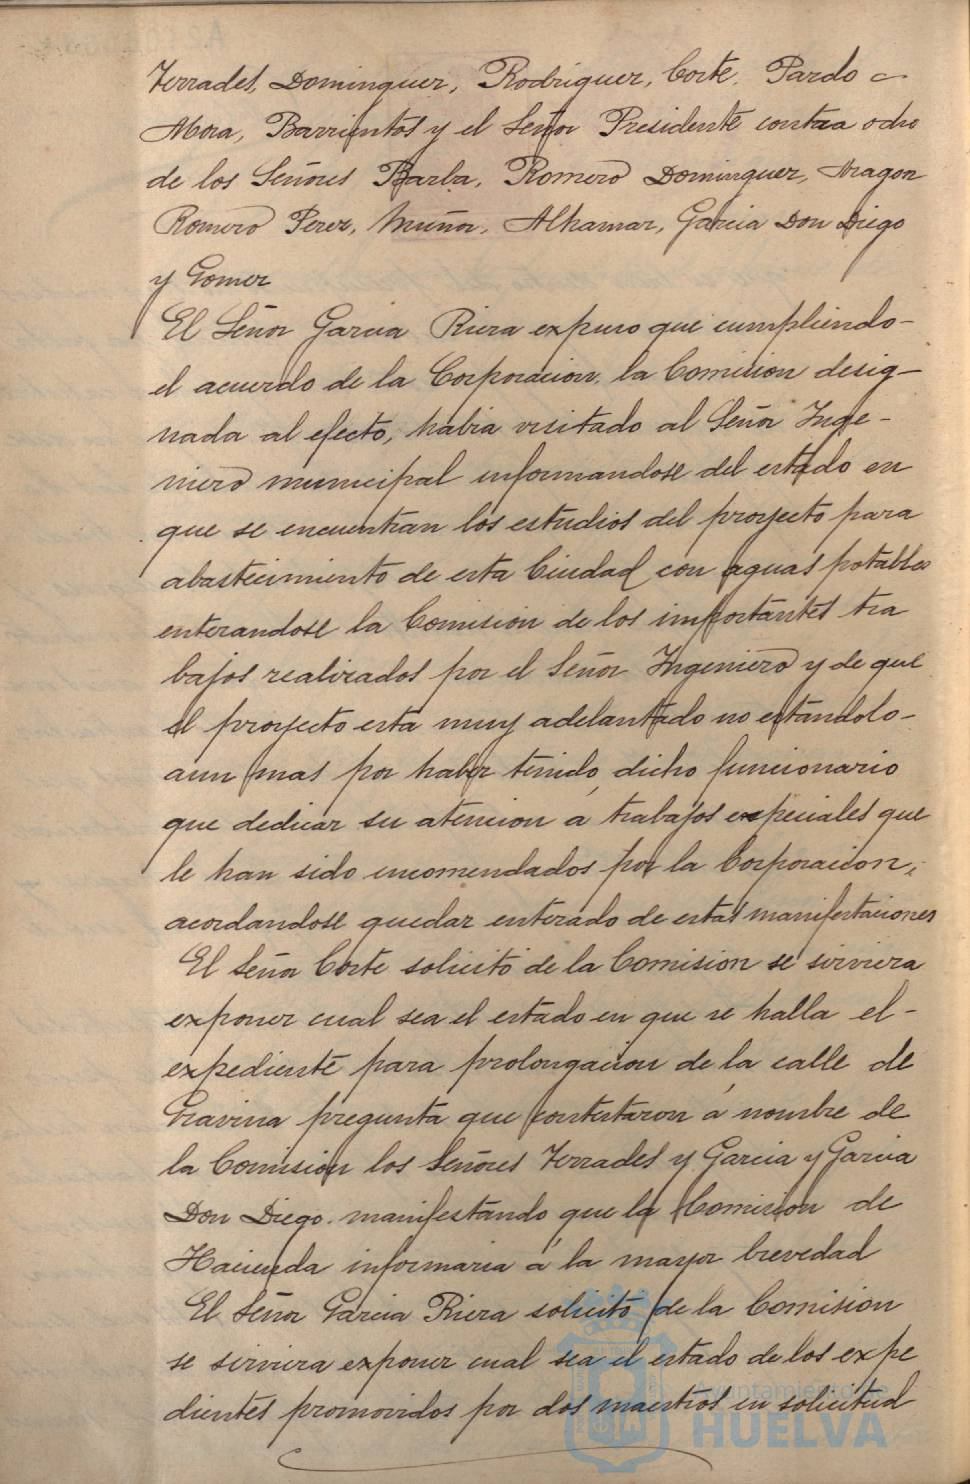 Terrades, Dominguez, Rodriguez, Corte, Pardo
Mora, Barrientos y el Señor Presidente contra ocho
de los Señores Barba, Romero Dominguez, Aragon
Romero Perez, Muñoz, Alhamar, Garcia Don Diego
y Gomez
El Señor Garcia Riera expuso que cumpliendo-
el acuerdo de la Corporacion, la Comision desig-
nada al efecto, habia visitado al Señor Inge-
niero municipal informandose del estado en
que se encuentran los estudios del proyecto para
abastecimiento de esta Ciudad con aguas potables
enterandose la Comision de los importantes tra
bajos realizados por el Señor Ingeniero y de que
el proyecto esta muy adelantado no estandolo-
aun mas por haber tenido dicho funcionario
que dedicar su atencion á trabajos especiales que
le han sido encomendados por la Corporacion,
acordandose quedar enterado de estas manifestaciones
El Señor Corte solicitó de la Comision se sirviera
exponer cual sea el estado en que se halla el-
expediente para prolongacion de la calle de
Gravina pregunta que contestaron á nombre de
la Comision los Señores Terrades y Garcia y Garcia
Don Diego manifestando que la Comision de
Hacienda informaria á la mayor brevedad
El Señor Garcia Riera solicitó de la Comision
se sirviera exponer cual sea el estado de los expe
dientes promovidos por dos maestros en solicitud
Ayuntamiento de
HUELVA